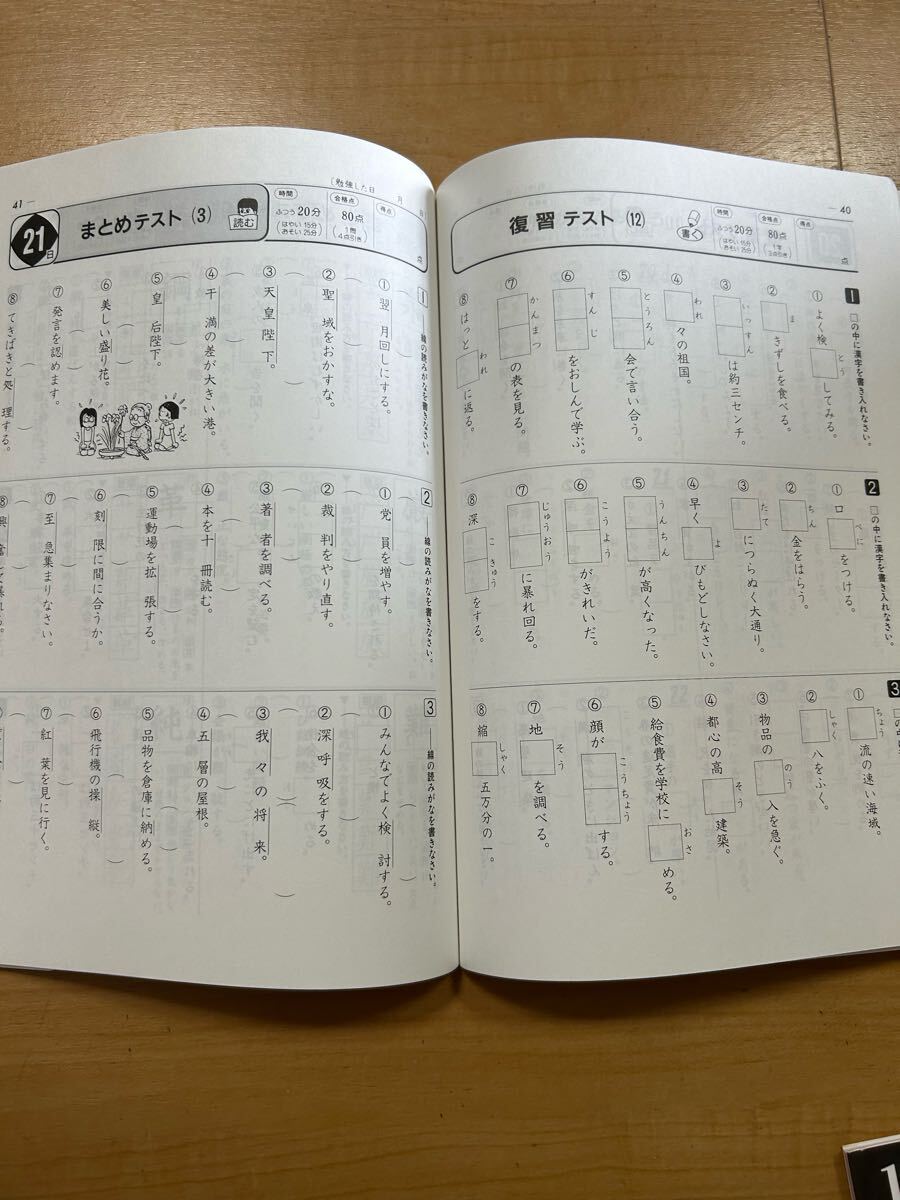 — 40
復習 テスト (12)
書く
時間
ふつう20分
(はやい15分)
(おそい25分)
合格点
80点
(1字)
(3点引き)
得点
点
1 □の中に漢字を書き入れなさい。
①よく検□とうしてみる。
②□まきずしを食べる。
③□□いっすんは約三センチ。
④□われ々の祖国。
⑤□□とうろん会で言い合う。
⑥□□すんじをおしんで学ぶ。
⑦□□かんまつの表を見る。
⑧はっと□われに返る。
2 □の中に漢字を書き入れなさい。
①口□べにをつける。
②□ちん金をはらう。
③□たてにつらぬく大通り。
④早く□よびもどしなさい。
⑤□□うんちんが高くなった。
⑥□□こうようがきれいだ。
⑦□□じゅうおうに暴れ回る。
⑧深□□こきゅうをする。
3
①□ちょう流の速い海域。
②□しゃく八をふく。
③物品の□のう入を急ぐ。
④都心の高□そう建築。
⑤給食費を学校に□おさめる。
⑥顔が□□こうちょうする。
⑦地□そうを調べる。
⑧縮□しゃく五万分の一。
41 —
〔勉強した日 月 日〕
21日
まとめテスト (3)
読む
時間
ふつう20分
(はやい15分)
(おそい25分)
合格点
80点
(1問)
(4点引き)
得点
点
1 ——線の読みがなを書きなさい。
①翌月回しにする。
②聖域をおかすな。
③天皇陛下。
④干満の差が大きい港。
⑤皇后陛下。
⑥美しい盛り花。
⑦発言を認めます。
⑧てきぱきと処理する。
2 ——線の読みがなを書きなさい。
①党員を増やす。
②裁判をやり直す。
③著者を調べる。
④本を十冊読む。
⑤運動場を拡張する。
⑥刻限に間に合うか。
⑦至急集まりなさい。
3 ——線の読みがなを書きなさい。
①みんなでよく検討する。
②深呼吸をする。
③我々の将来。
④五層の屋根。
⑤品物を倉庫に納める。
⑥飛行機の操縦。
⑦紅葉を見に行く。